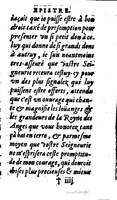 EPISTRE.
daçois que ia puisse estre à bon
droit taxé de presumption pour
presenter vn si petit don à ce-
luy qui donne de si grands dons
à autruy, ie suis neantmoins
tres-asseuré que vostre Sei-
gneurie receura cestuy-cy pour
vn des plus signalez que luy
puissent estre offerts, attendu
que c'est vn ouurage qui chan-
te & magnifie les loüanges &
les grandeurs de la Royne des
Anges que vous honorez tant
en la terre, & pour ce moyen
que vostre Seigneurie
m'estrisera ceste promptitu-
de de mon courage, qui dourroit
choses plus precieuses & mieux
† iiij